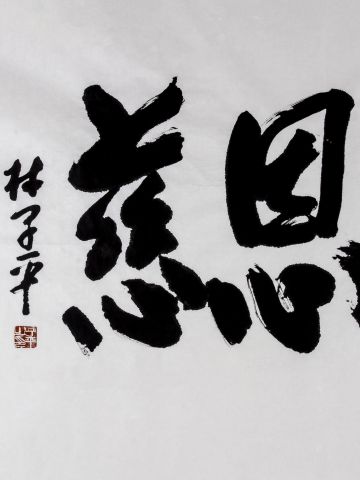 恩慈
林子平